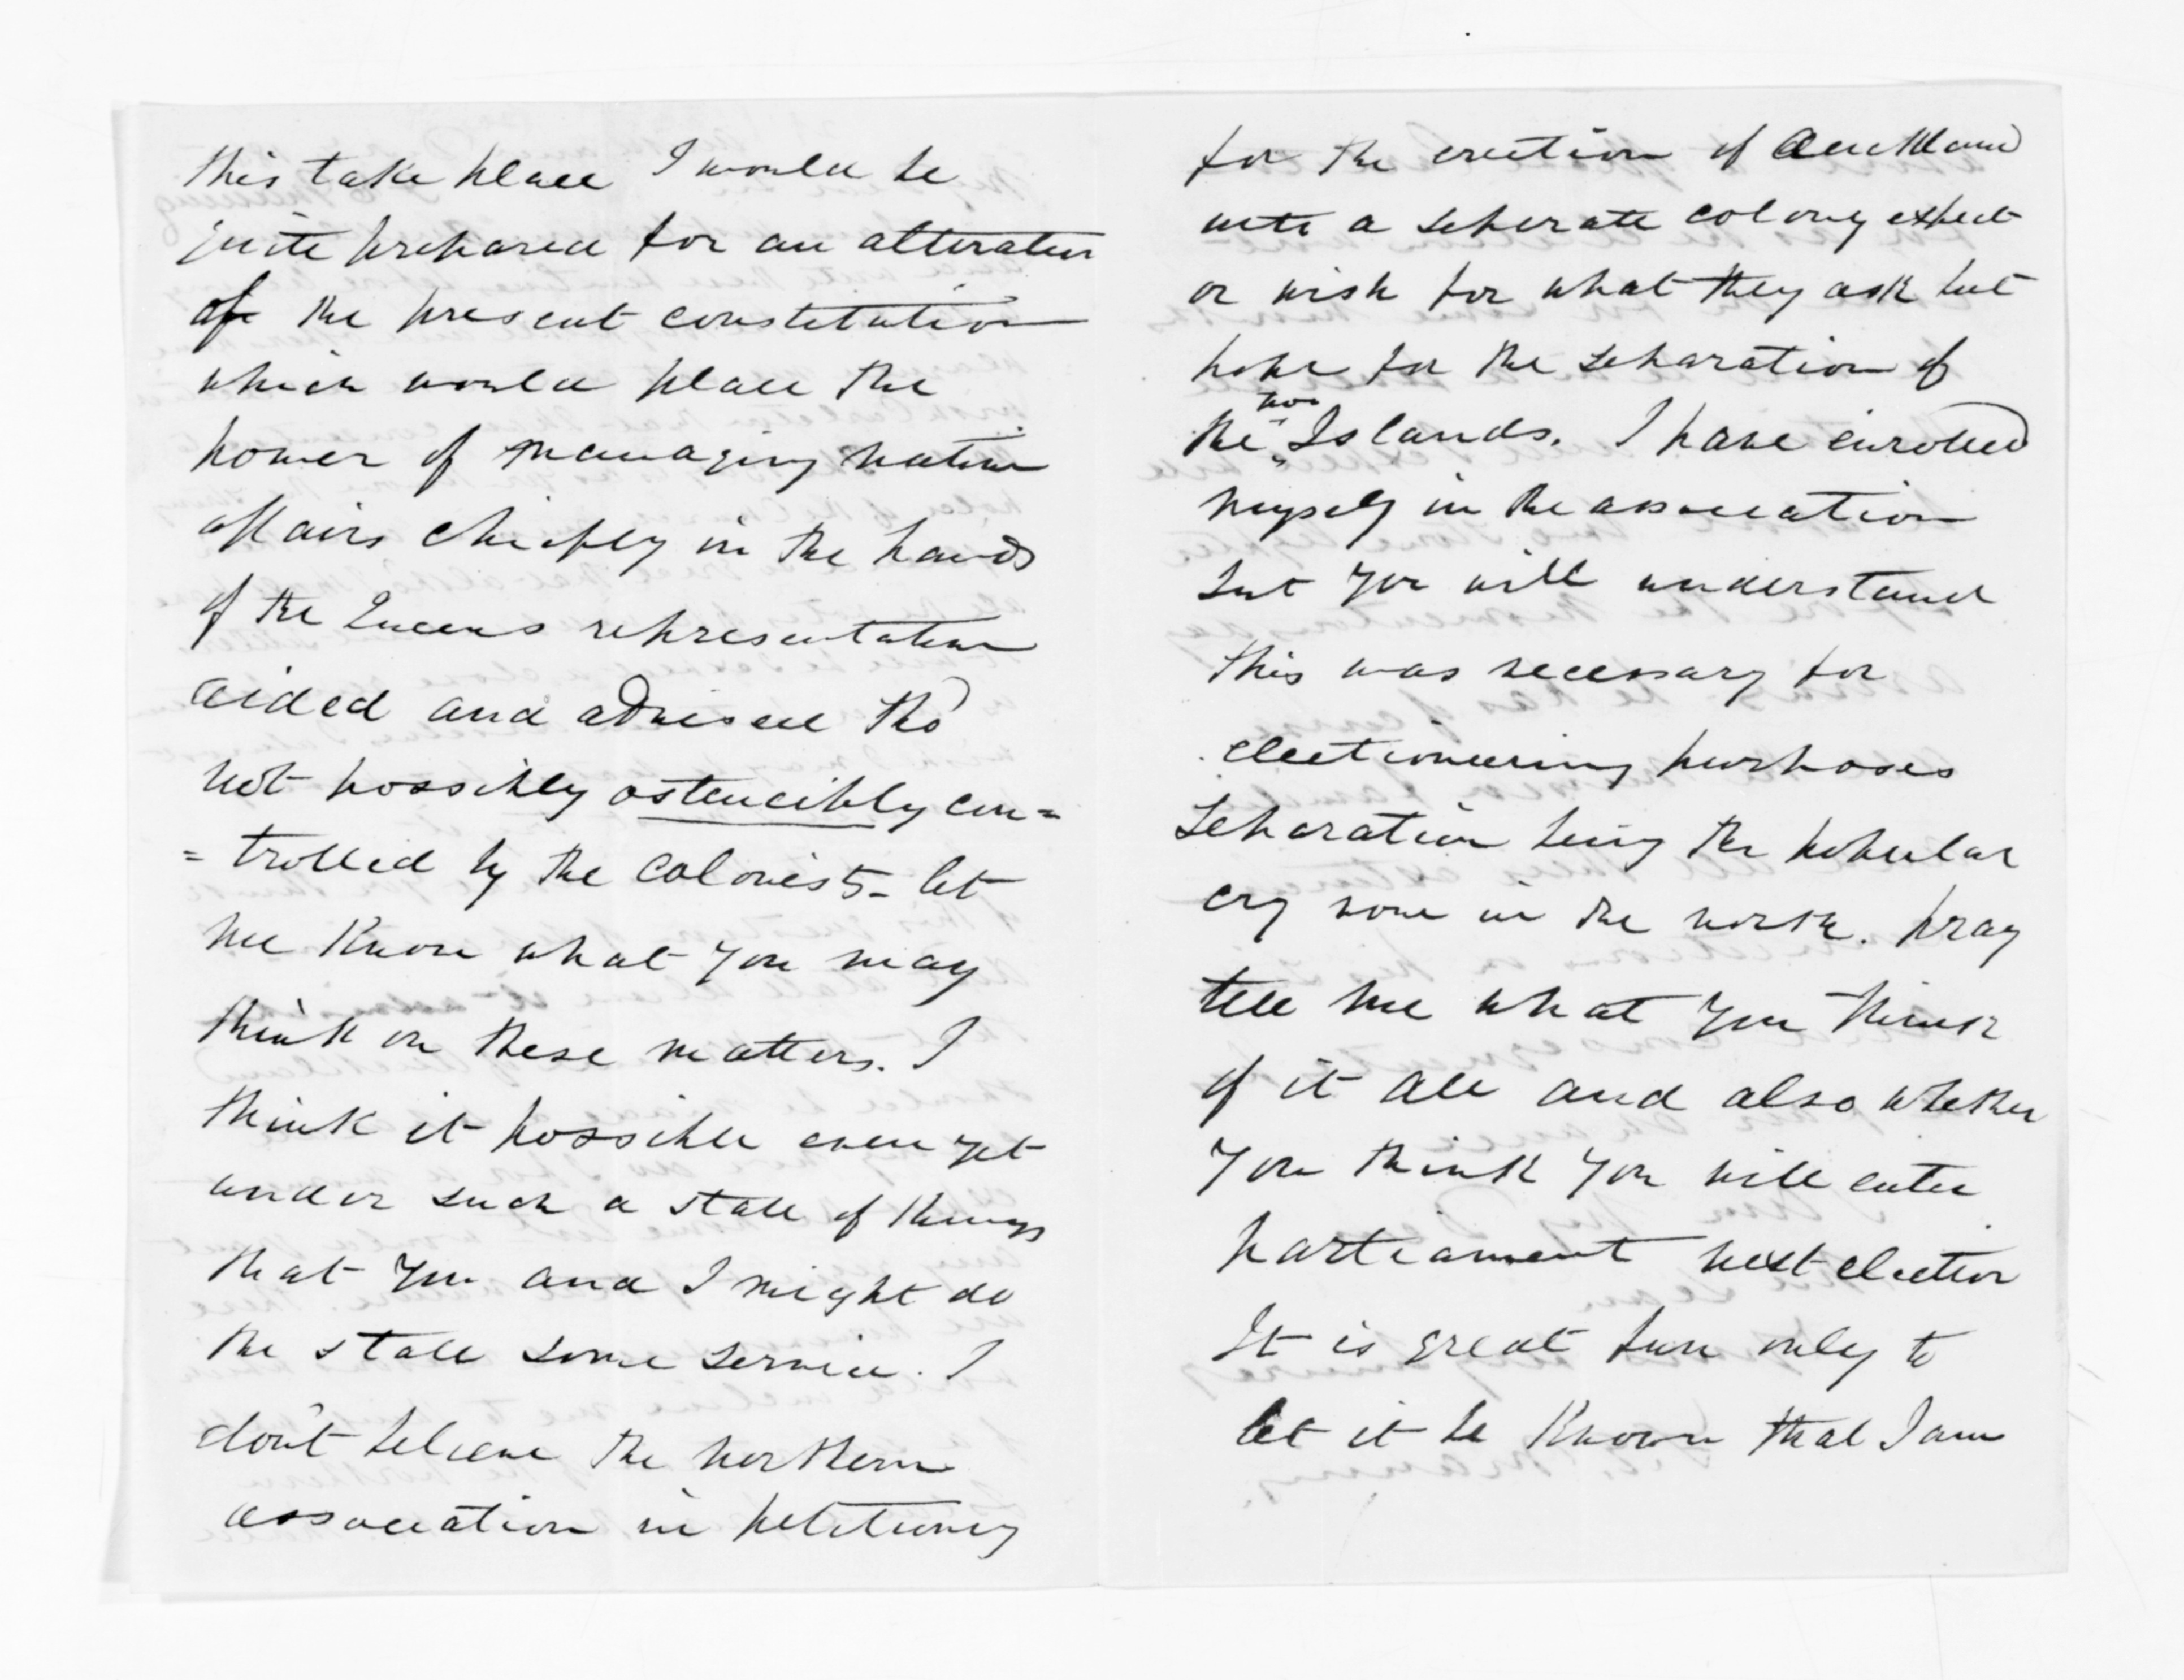 this take place I would be
quite prepared for an alteration
of the present constitution
which would place the
power of managing native
affairs chiefly in the hands
of the Queens representation
aided and advised tho
not possibly ostensibly con=
=trolled by the colonists - let
me know what you may
think on these matters. I
think it possible even yet
under such a state of things
that you and I might do
the state some service. I
dont believe the northern
association in petitioning
for the erection of Auckland
into a seperate colony expect
or wish for what they ask but
hope for the separation of
the two Islands. I have enrolled
myself in the association
but you will understand
this was necessary for
electioneering purposes
separation being the popular
cry now in the north. pray
tell me what you think
of it all and also whether
you think you will enter
parliament next election
It is great fun only to
let it be known that I am